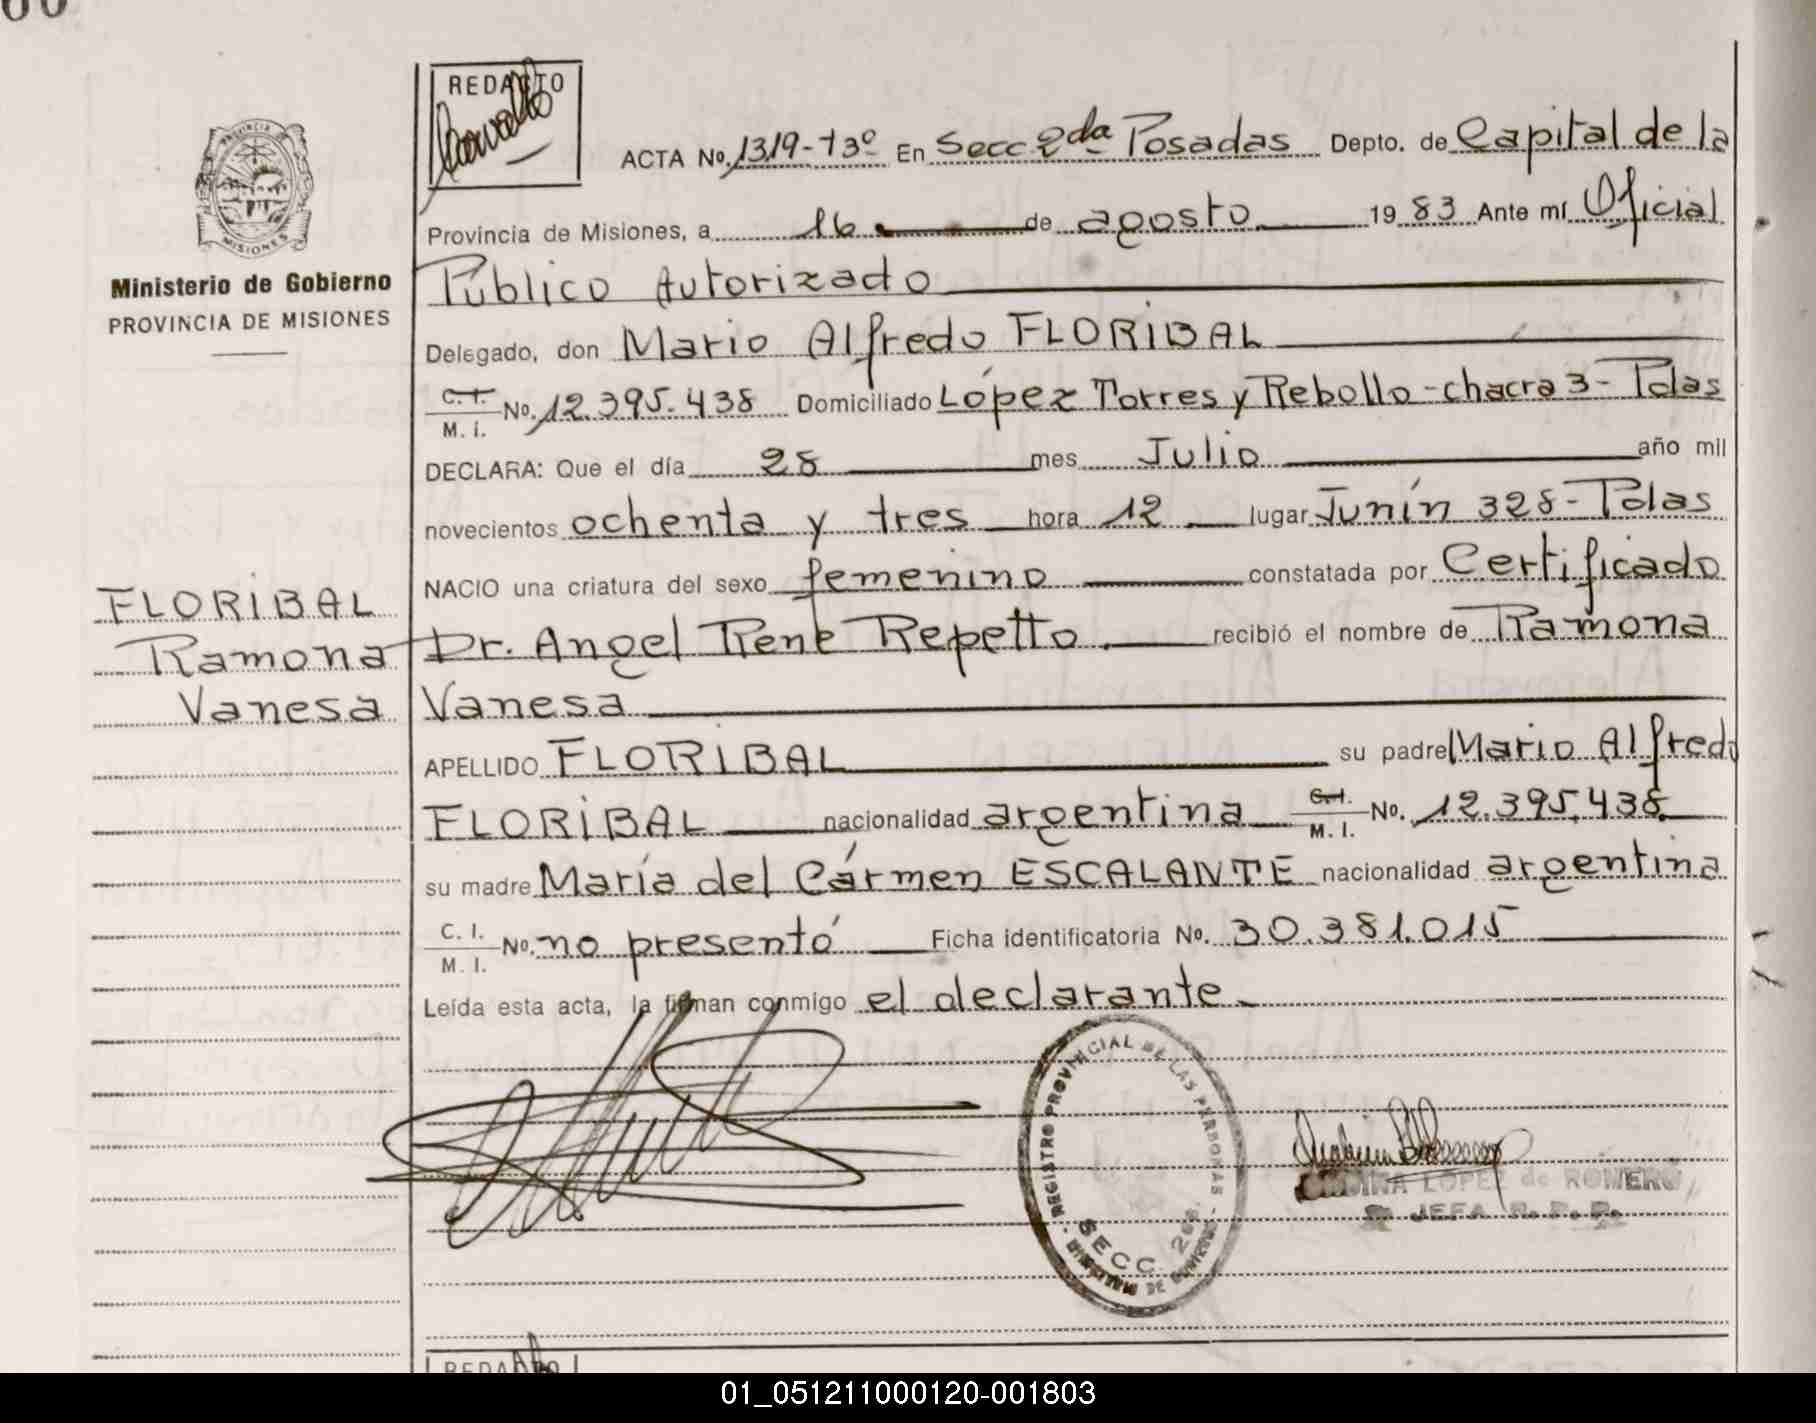 REDACTO
ACTA No. 1319-T3º En Secc 2da Posadas Depto. de Capital de la
Provincia de Misiones, a 16 de agosto 1983 Ante mí Oficial
Público Autorizado
Delegado, don Mario Alfredo FLORIBAL
C. I. M. I. No. 12.395.438 Domiciliado López Torres y Rebollo - chacra 3 - Pdas
DECLARA: Que el día 28 mes Julio año mil
novecientos ochenta y tres hora 12 lugar Junín 328 - Pdas
NACIO una criatura del sexo femenino constatada por Certificado
Dr. Angel René Repetto. recibió el nombre de Ramona
Vanesa
APELLIDO FLORIBAL su padre Mario Alfredo
FLORIBAL nacionalidad argentina C. I. M. I. No. 12.395.438
su madre María del Cármen ESCALANTE nacionalidad argentina
C. I. M. I. No. no presentó Ficha identificatoria No. 30.381.015
Leída esta acta, la firman conmigo el declarante
PROVINCIA DE MISIONES
Ministerio de Gobierno
PROVINCIA DE MISIONES
FLORIBAL
Ramona
Vanesa
REGISTRO PROVINCIAL DE LAS PERSONAS
SECC. 2da.
LOPEZ de ROMERO
JEFA R. P. P.
REDACTO
01_051211000120-001803